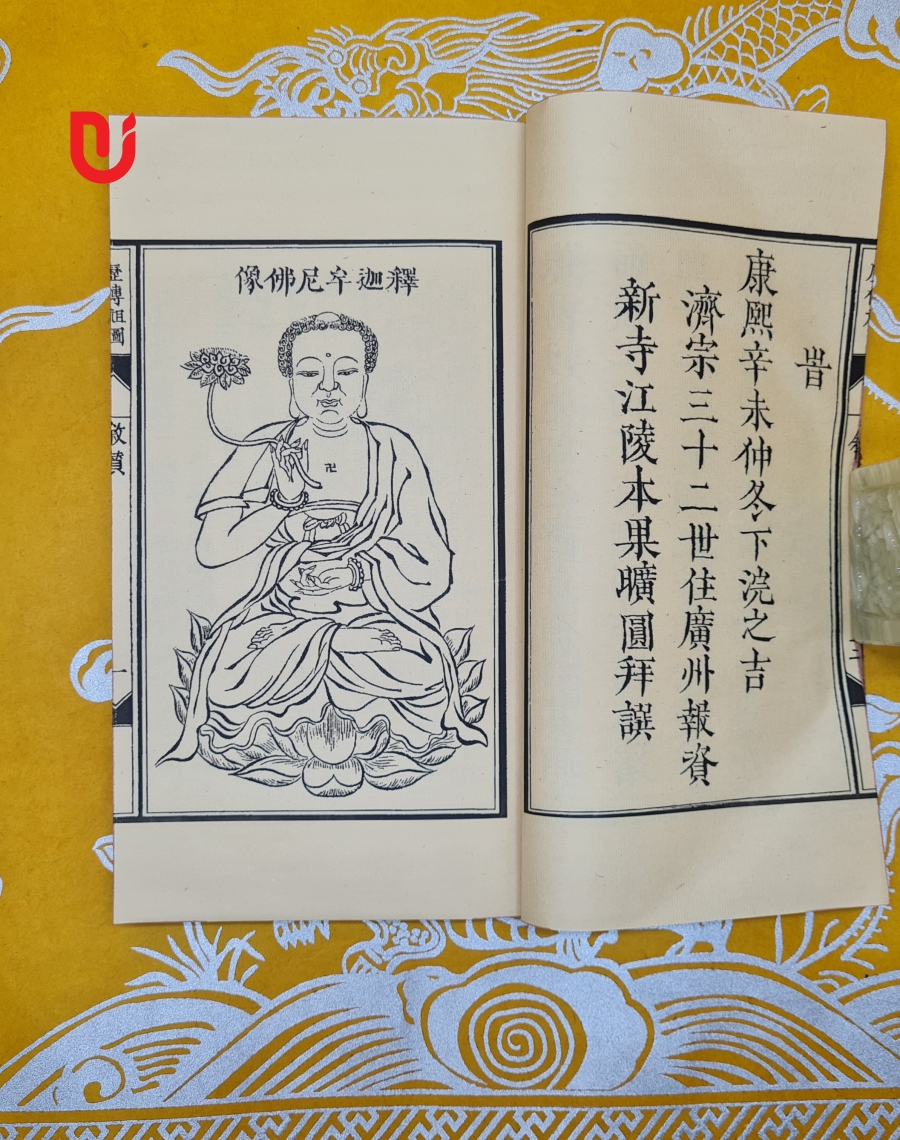 旹
康熙辛未仲冬下浣之吉
濟宗三十二世住廣州報資
新寺江陵本果曠圓拜譔
釋迦牟尼佛像
卍
歷傳祖圖